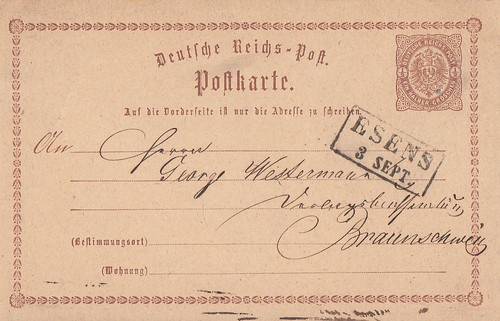 Deutsche Reichs-Post.
Postkarte.
Auf die Vorderseite ist nur die Adresse zu schreiben.
ESENS
3 SEPT.
An Herrn
George Westermann
Braunschweig
(Bestimmungsort)
(Wohnung)